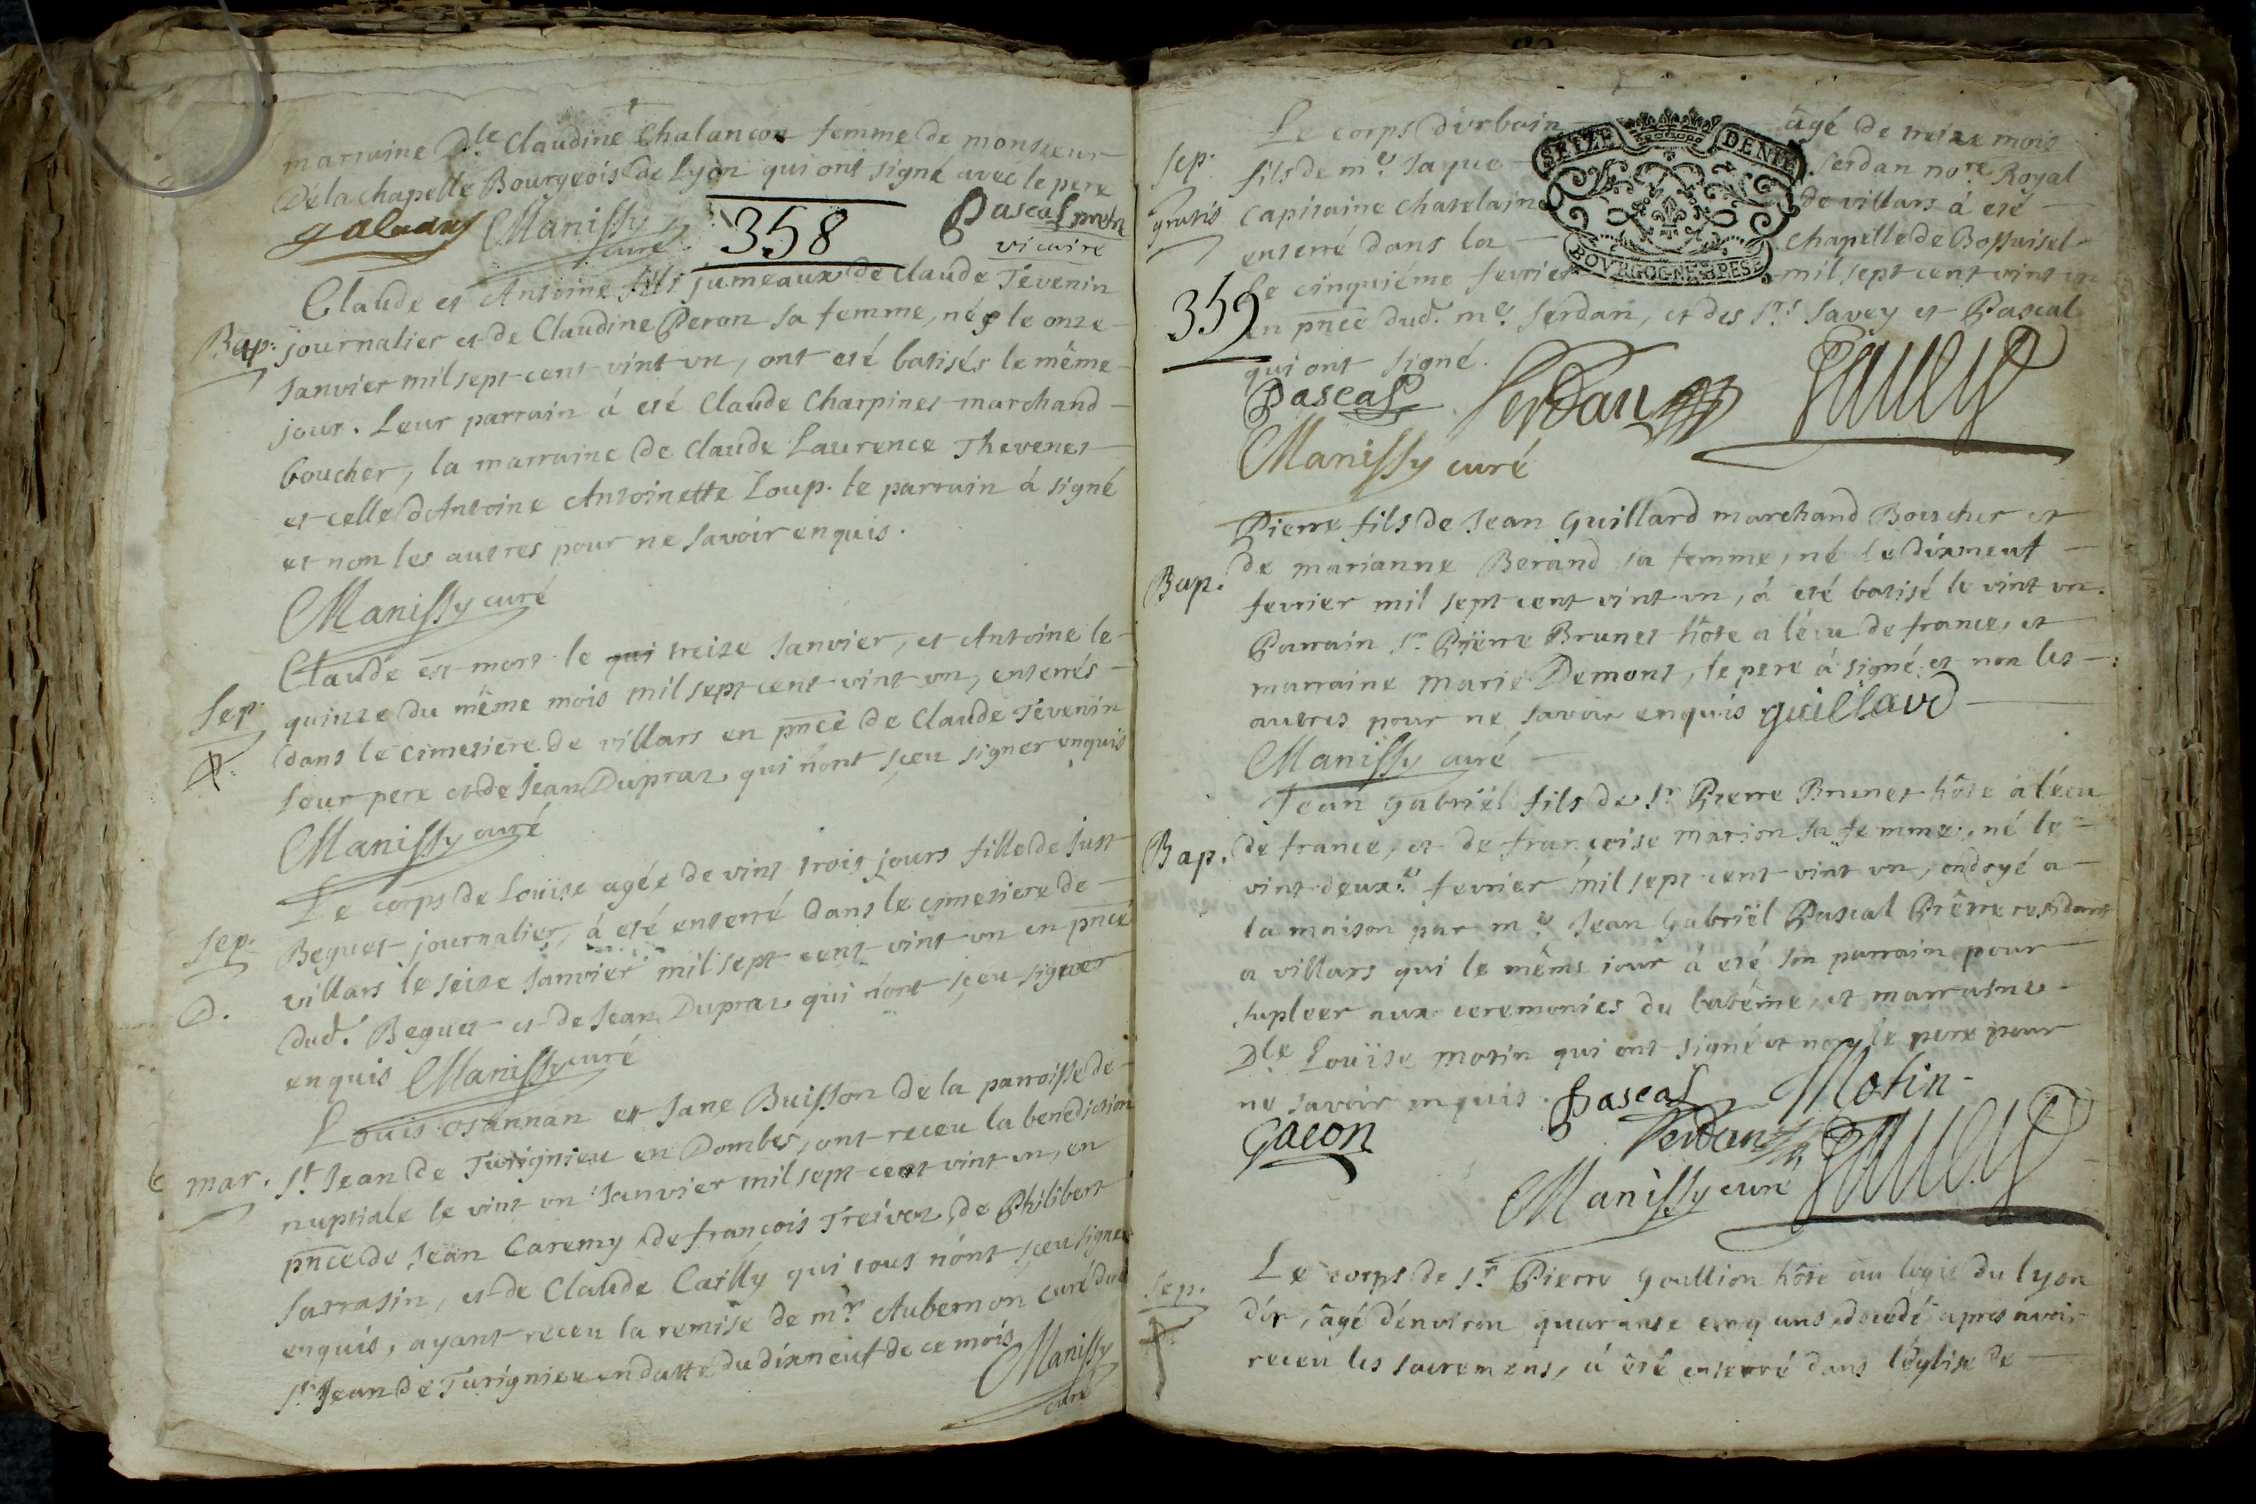 marraine Dle Claudine Chalancon femme de monsieur
Dela chapelle Bourgeois de Lyon qui ont signé avec le pere
Manissy curé
358
Pascal
vicaire
Claude et Antoine fils jumeaux de Claude Tevenin
Bap. journalier et de Claudine Peron sa femme, nés le onze
Janvier mil sept cent vint un, ont eté batisés le même
jour. Leur parrain á eté Claude Charpinet marchand
boucher, la marraine de Claude Laurence Thevenet
et celle d'Antoine Antoinette Loup. le parrain á signé
et non les autres pour ne savoir enquis.
Manissy curé
Claude est mort le qui treize Janvier, et Antoine le
Sep. quinze du même mois mil sept cent vint un, enterrés
dans le cimetiere de villars en pnce de Claude Tevenin
leur pere et de Jean Dupraz qui n'ont sçeu signer enquis
Manissy curé
Le corps de Loüise agée de vint trois jours fille de Just
Sep. Beguet journalier, á eté enterré dans le cimetiere de
D. villars le seize Janvier mil sept cent vint un en pnce
dud. Beguet et de Jean Dupraz qui n'ont sçeu signer
enquis Manissy curé
Louis osannan et Jane Buisson de la parroisse de
mar. St Jean de Turignieu en Dombes, ont receu la benediction
nuptiale le vint un Janvier mil sept cent vint un, en
pnce de Jean Caremy, de françois Treivoz, de Philibert
Sarrasin, et de Claude Cailly qui tous n'ont sçeu signer
enquis, ayant receu la remise de mr. Aubernon curé dud
St Jean de Turignieu en datte du dixneuf de ce mois
Manissy
curé
Le corps d'urbain âgé de treize mois
SEIZE DENIE
Sep. fils de me. Jaque Serdan nore Royal
gratis Capitaine Chatelain de villars á eté
enterré dans la chapelle de Bossuisel
BOVRGOGNE BRESE
Le cinquiéme fevrier mil sept cent vint un
359
en pnce dud. me. Serdan, et des Srs Savey et Pascal
qui ont signé.
Pascal Serdan Savey
Manissy curé
Pierre fils de Jean Guillard marchand Boucher et
de marianne Berand sa femme, né le dixneuf
Bap. fevrier mil sept cent vint un, á eté batisé le vint un.
Parrain Sr. Pierre Brunet hôte a l'écu de france, et
marraine marie Demont, le pere á signé et non les
autres pour ne savoir enquis guillard
Manissy curé
Jean gabriël fils de Sr Pierre Brunet hôte à l'écu
Bap. de france, et de françoise marion sa femme, né le
vint deuxe. fevrier mil sept cent vint un, ondoyé a
la maison par me. Jean Gabriël Pascal Prêtre residant
a villars qui le même jour á eté son parrain pour
supleer aux ceremonies du batême, et marraine
Dle Loüise motin qui ont signé et non le pere pour
ne savoir enquis. Pascal Motin
Gacon Serdan Savey
Manissy curé
Le corps de Sr Pierre Goullion hôte au logis du lyon
Sep. d'or, âgé d'environ quarante cinq ans, decedé apres avoir
receu les sacremens, á êté enterré dans l'église de